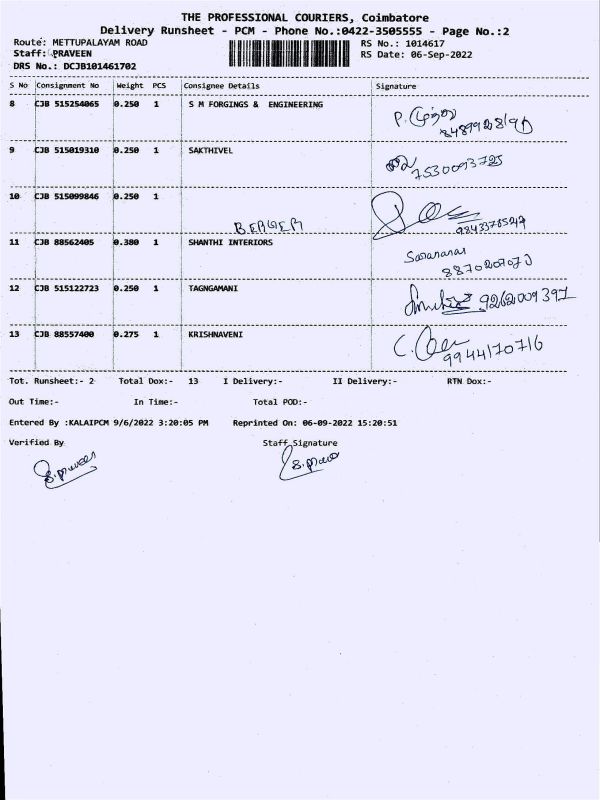 THE PROFESSIONAL COURIERS, Coimbatore
Delivery Runsheet - PCM - Phone No.:0422-3505555 - Page No.:2
Route: METTUPALAYAM ROAD RS No.: 1014617
Staff: PRAVEEN RS Date: 06-Sep-2022
DRS No.: DCJB101461702
S No Consignment No Weight PCS Consignee Details Signature
8 CJB 515254065 0.250 1 S M FORGINGS & ENGINEERING
9 CJB 515019310 0.250 1 SAKTHIVEL
7530093725
10 CJB 515099846 0.250 1
BERGER
11 CJB 88562405 0.380 1 SHANTHI INTERIORS
12 CJB 515122723 0.250 1 TAGNGAMANI
9262009397
13 CJB 88557400 0.275 1 KRISHNAVENI
9944170716
Tot. Runsheet:- 2 Total Dox:- 13 I Delivery:- II Delivery:- RTN Dox:-
Out Time:- In Time:- Total POD:-
Entered By :KALAIPCM 9/6/2022 3:20:05 PM Reprinted On: 06-09-2022 15:20:51
Verified By Staff Signature